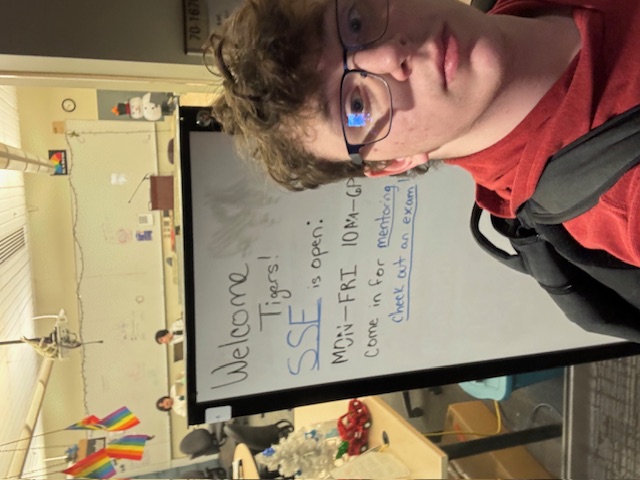 Welcome
Tigers!
SSE is open:
MON-FRI 10AM-6P
Come in for mentoring
check out an exam!
70-167